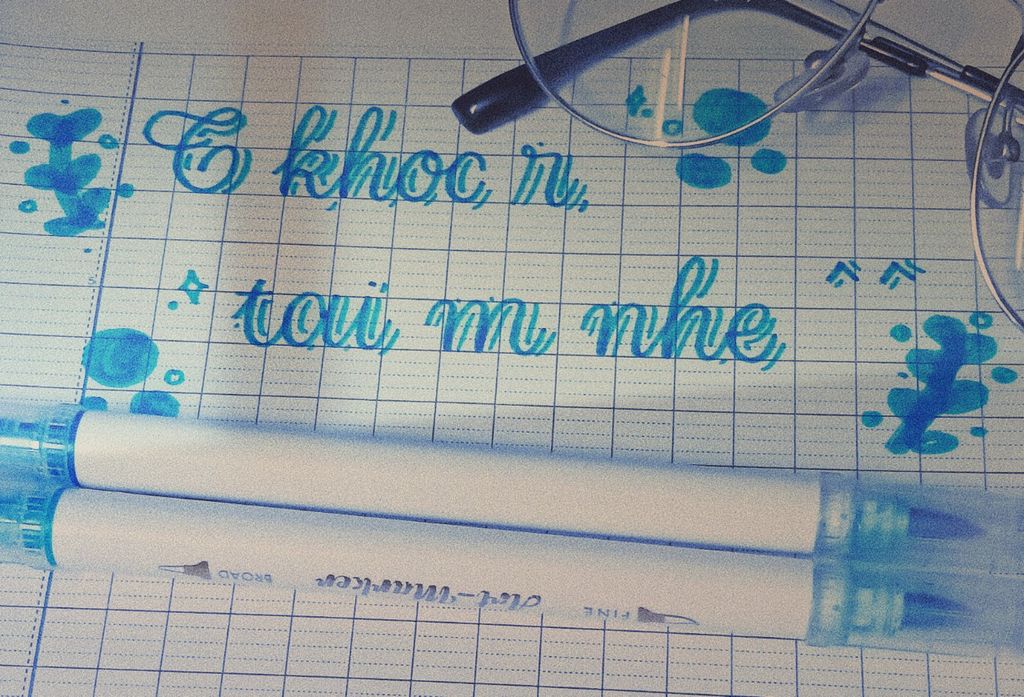 E khoc r,
toui m nhe ^^ ^^
BROAD Art-Marker FINE